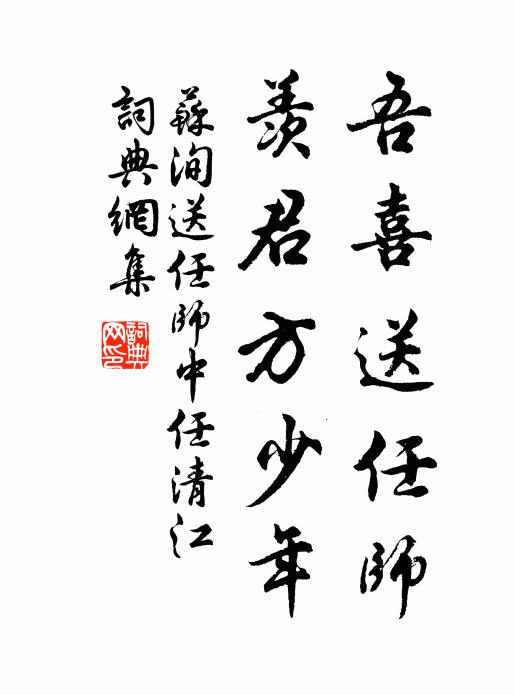 吾喜送任師
羨君方少年
蘇洵送任師中任清江
詞典網集
詞典網印